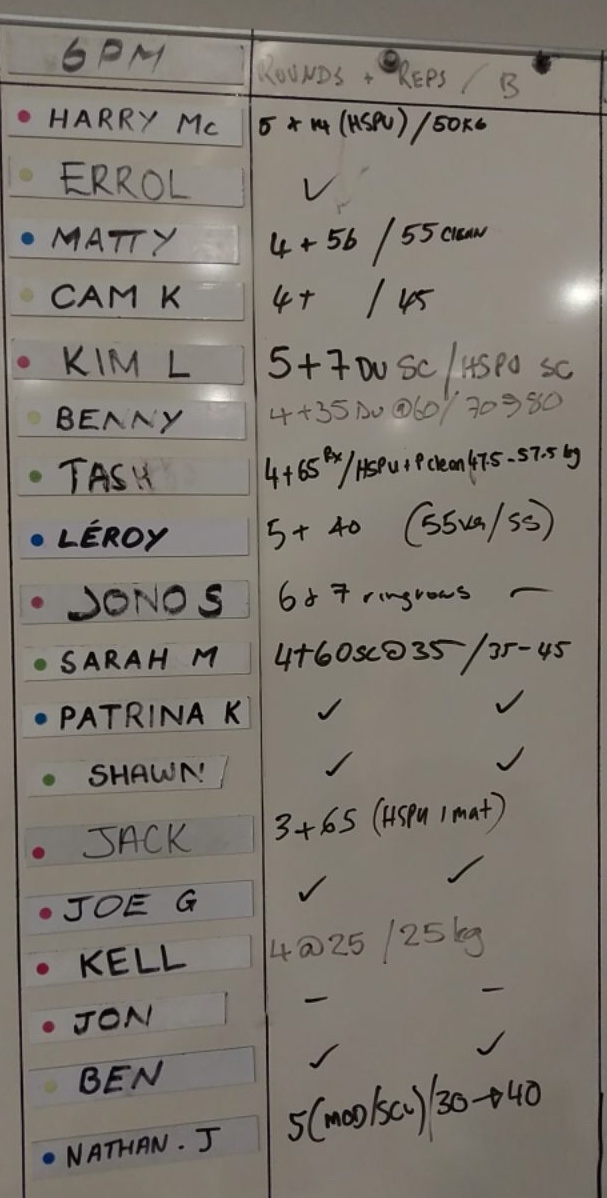 6PM ROUNDS + REPS / B
HARRY Mc 5 + 14 (HSPU) / 50KG
ERROL ✓
MATTY 4 + 56 / 55 CLEAN
CAM K 4+ / 45
KIM L 5+7 DU SC / HSPU SC
BENNY 4+35 DU @60 / 70 980
TASH 4+65 Rx / HSPU + P clean 47.5 - 57.5 kg
LÉROY 5+ 40 (55kg/55)
JONO S 6 & 7 ringrows —
SARAH M 4+60SC@35 / 35-45
PATRINA K ✓ ✓
SHAWN ✓ ✓
JACK 3+65 (HSPU 1 mat)
JOE G ✓ ✓
KELL 4@25 / 25kg
JON — —
BEN ✓ ✓
NATHAN. J 5(MOD/SCL)/30→40